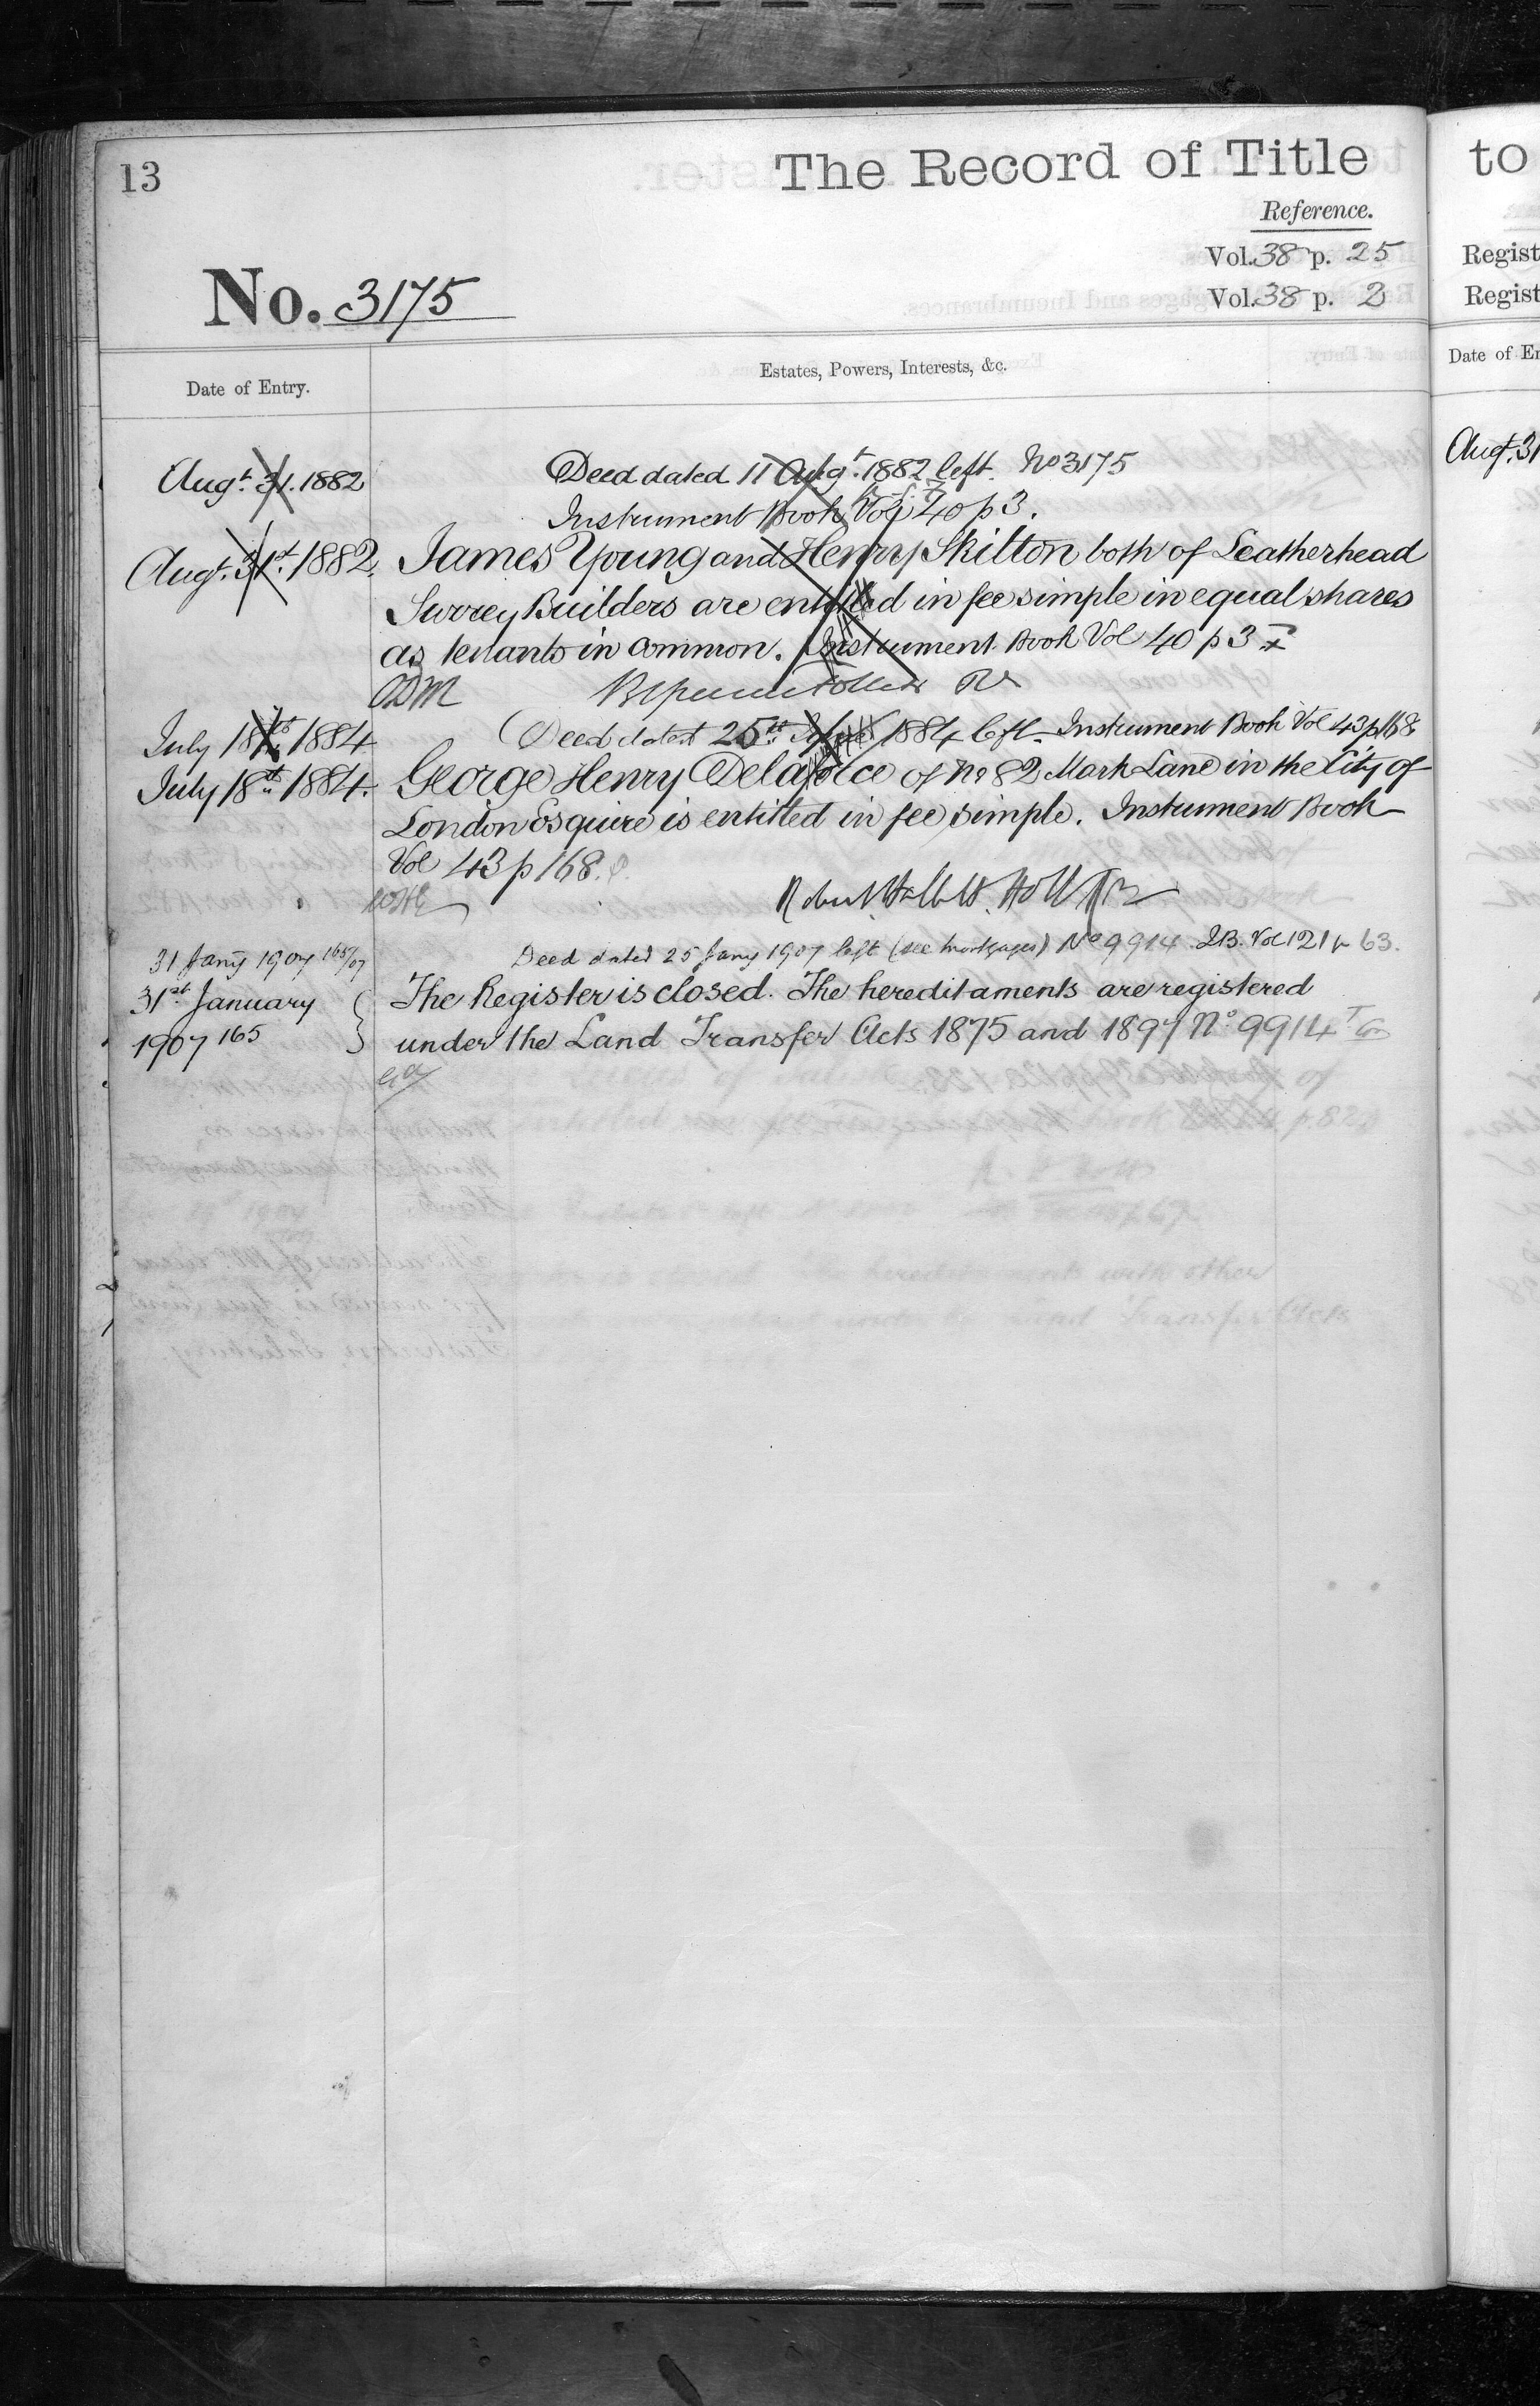 13
The Record of Title
to
Reference.
Vol. 38 p. 25
Regist
No. 3175
Vol. 38 p. 2
Regist
Date of Entry.
Estates, Powers, Interests, &c.
Date of En
Augt. 31. 1882
Deed dated 11 Augt. 1882 left. No 3175
Augt. 31
Instrument Book Vol 40 p 3.
Augt. 31st. 1882.
James Young and Henry Skilton both of Leatherhead
Surrey Builders are entitled in fee simple in equal shares
as tenants in common. Instrument Book Vol 40 p 3
July 18th 1884
Deed dated 25th June 1884 left - Instrument Book Vol 43 p 168
July 18th 1884.
George Henry Delaforce of No 82 Mark Lane in the City of
London Esquire is entitled in fee simple. Instrument Book
Vol 43 p 168.
31 Jany 1907 165/07
Deed dated 25 Jany 1907 left (see Mortgages) No 9914 I.B. Vol 121 p 63.
31st January
The Register is closed. The hereditaments are registered
1907 165
under the Land Transfer Acts 1875 and 1897 No. 9914